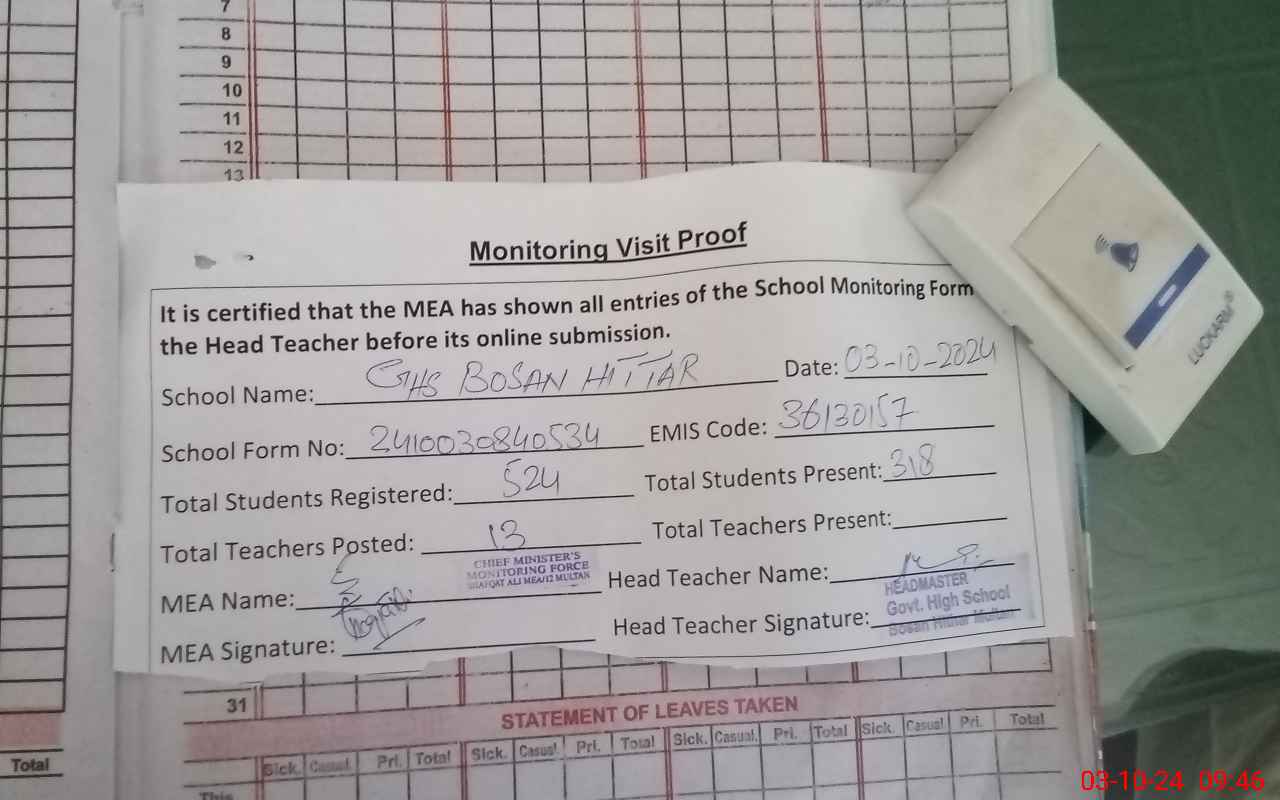 7
8
9
10
11
12
13
Monitoring Visit Proof
It is certified that the MEA has shown all entries of the School Monitoring Form
the Head Teacher before its online submission.
School Name: GHS BOSAN HITTAR Date: 03-10-2024
School Form No: 2410030840534 EMIS Code: 36130157
Total Students Registered: 524 Total Students Present: 318
Total Teachers Posted: 13 Total Teachers Present:
CHIEF MINISTER'S
MONITORING FORCE
SHAFQAT ALI MEA/12 MULTAN
MEA Name: Head Teacher Name:
HEADMASTER
Govt. High School
Bosan Hittar Multan
MEA Signature: Head Teacher Signature:
LUCKARM®
31
STATEMENT OF LEAVES TAKEN
Sick. Casual. Pri. Total Sick. Casual. Pri. Total Sick. Casual. Pri. Total Sick. Casual. Pri. Total
Total
This
03-10-24 09:46